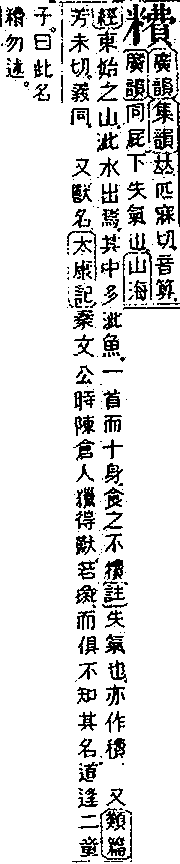 廣韻集韻𠀤匹寐切。音算。
廣韻同屁下失氣也。山海
經東始之山。泚水出焉。其中多茈魚。一首而十身。食之不。註失氣也。亦作。又類篇
芳未切。義同。又獸名。太康記秦文公時陳倉人獵得獸若彘。而俱不知其名。道逢二童
子。曰此名
勿述。